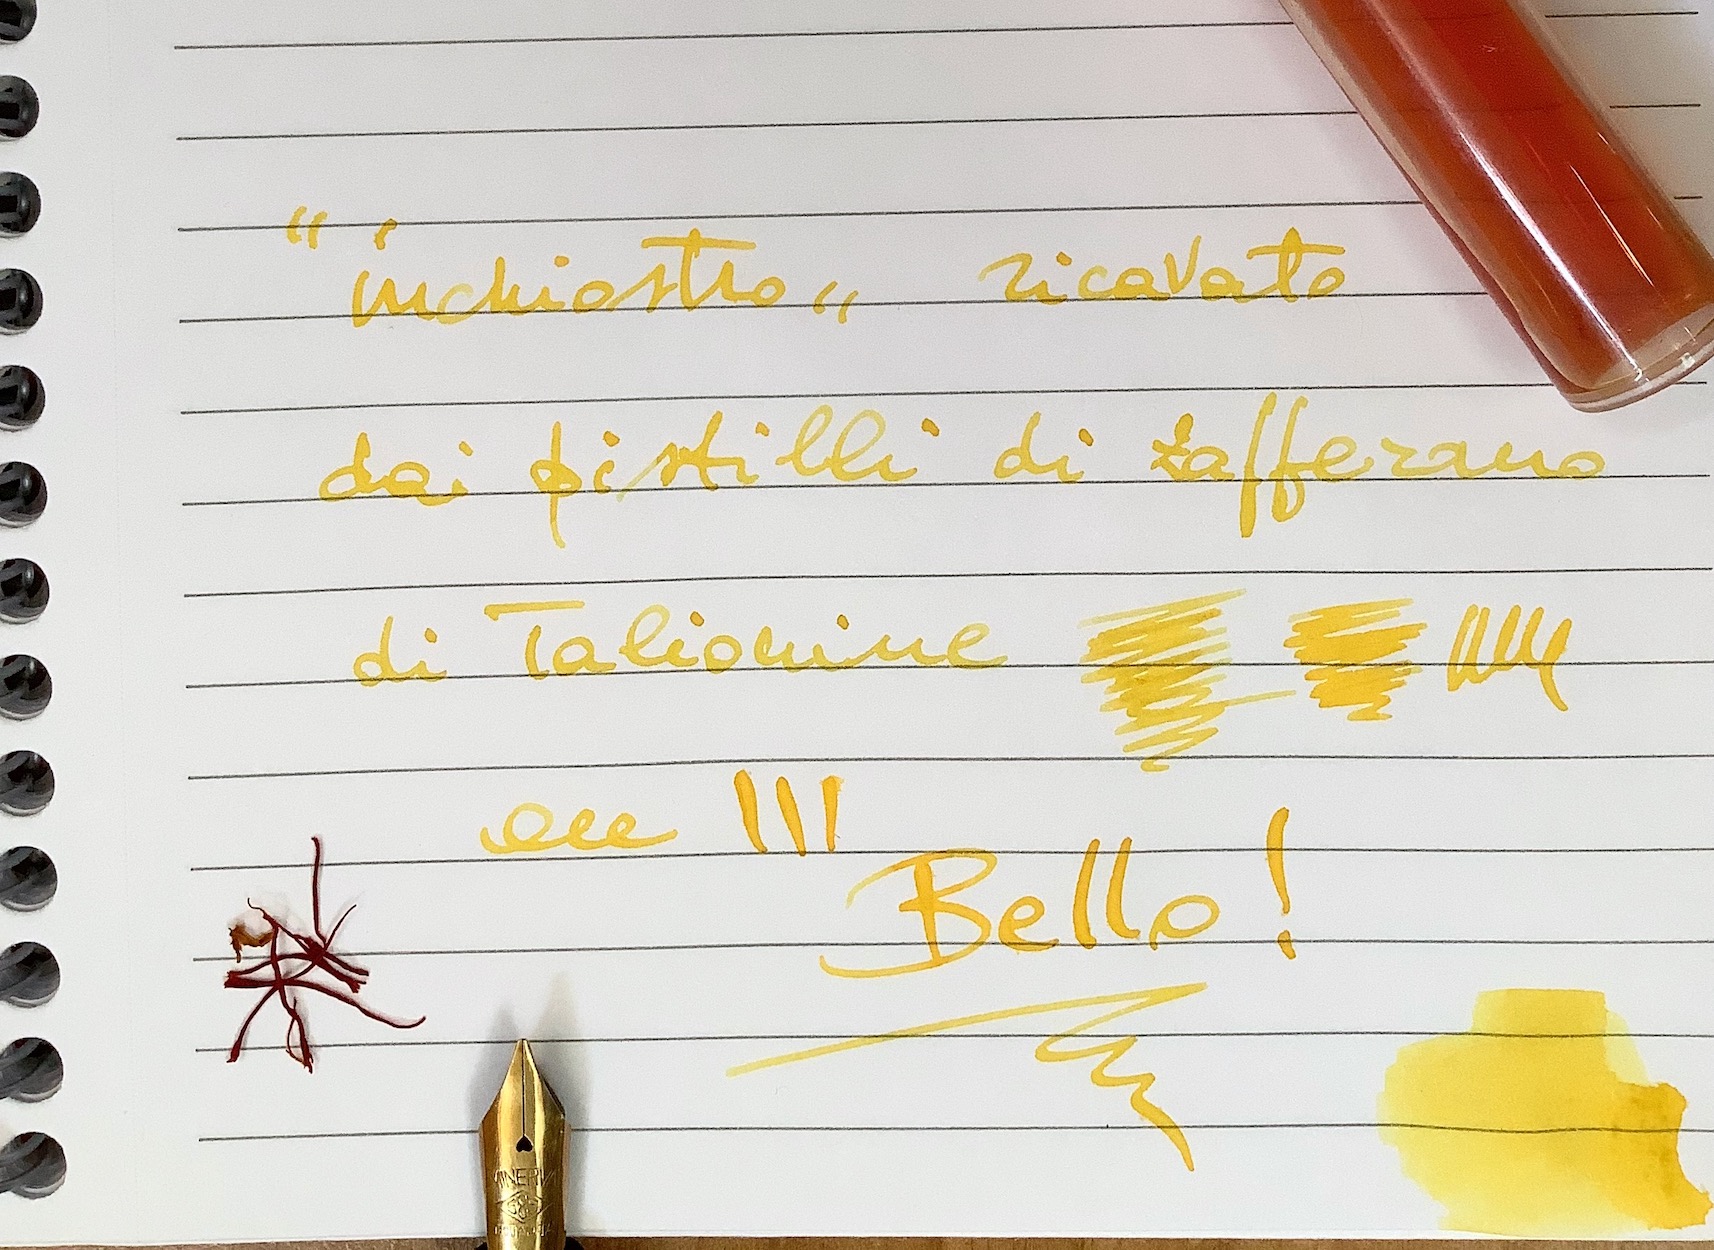 "inchiostro" ricavato
dai pistilli di zafferano
di Taliomine
ecc
Bello!
MINERVA